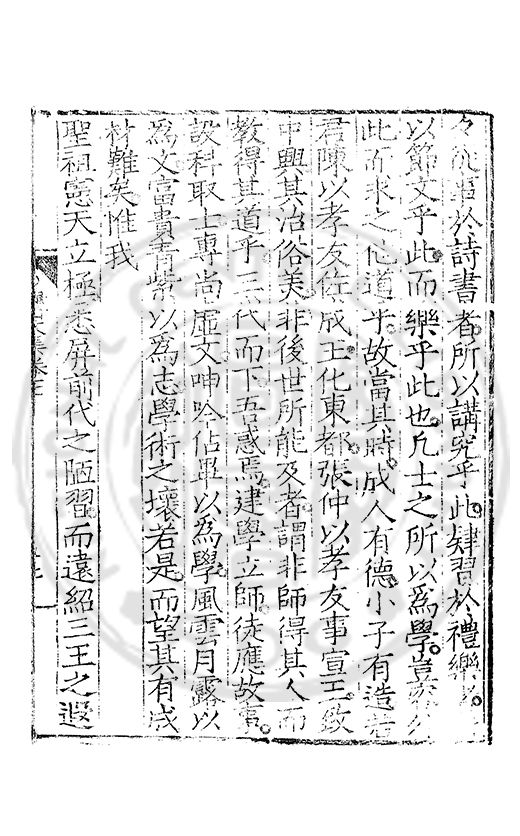 々從事於詩書者所以講究乎此肄習於禮樂者所
以節文乎此而樂乎此也凡士之所以為學豈
此而求之他道乎故當其時成人有德小子有造若
君陳以孝友佐成王化東都張仲以孝友事宣王致
中興其治俗美非後世所能及者謂非師得其人而
教得其道乎三代而下吾惑焉建學立師徒應故事
設科取士專尚虛文呻吟佔畢以為學風雲月露以
為文富貴青紫以為志學術之壞若是而望其有成
材難矣惟我
聖祖憲天立極悉屏前代之陋習而遠紹三王之遐